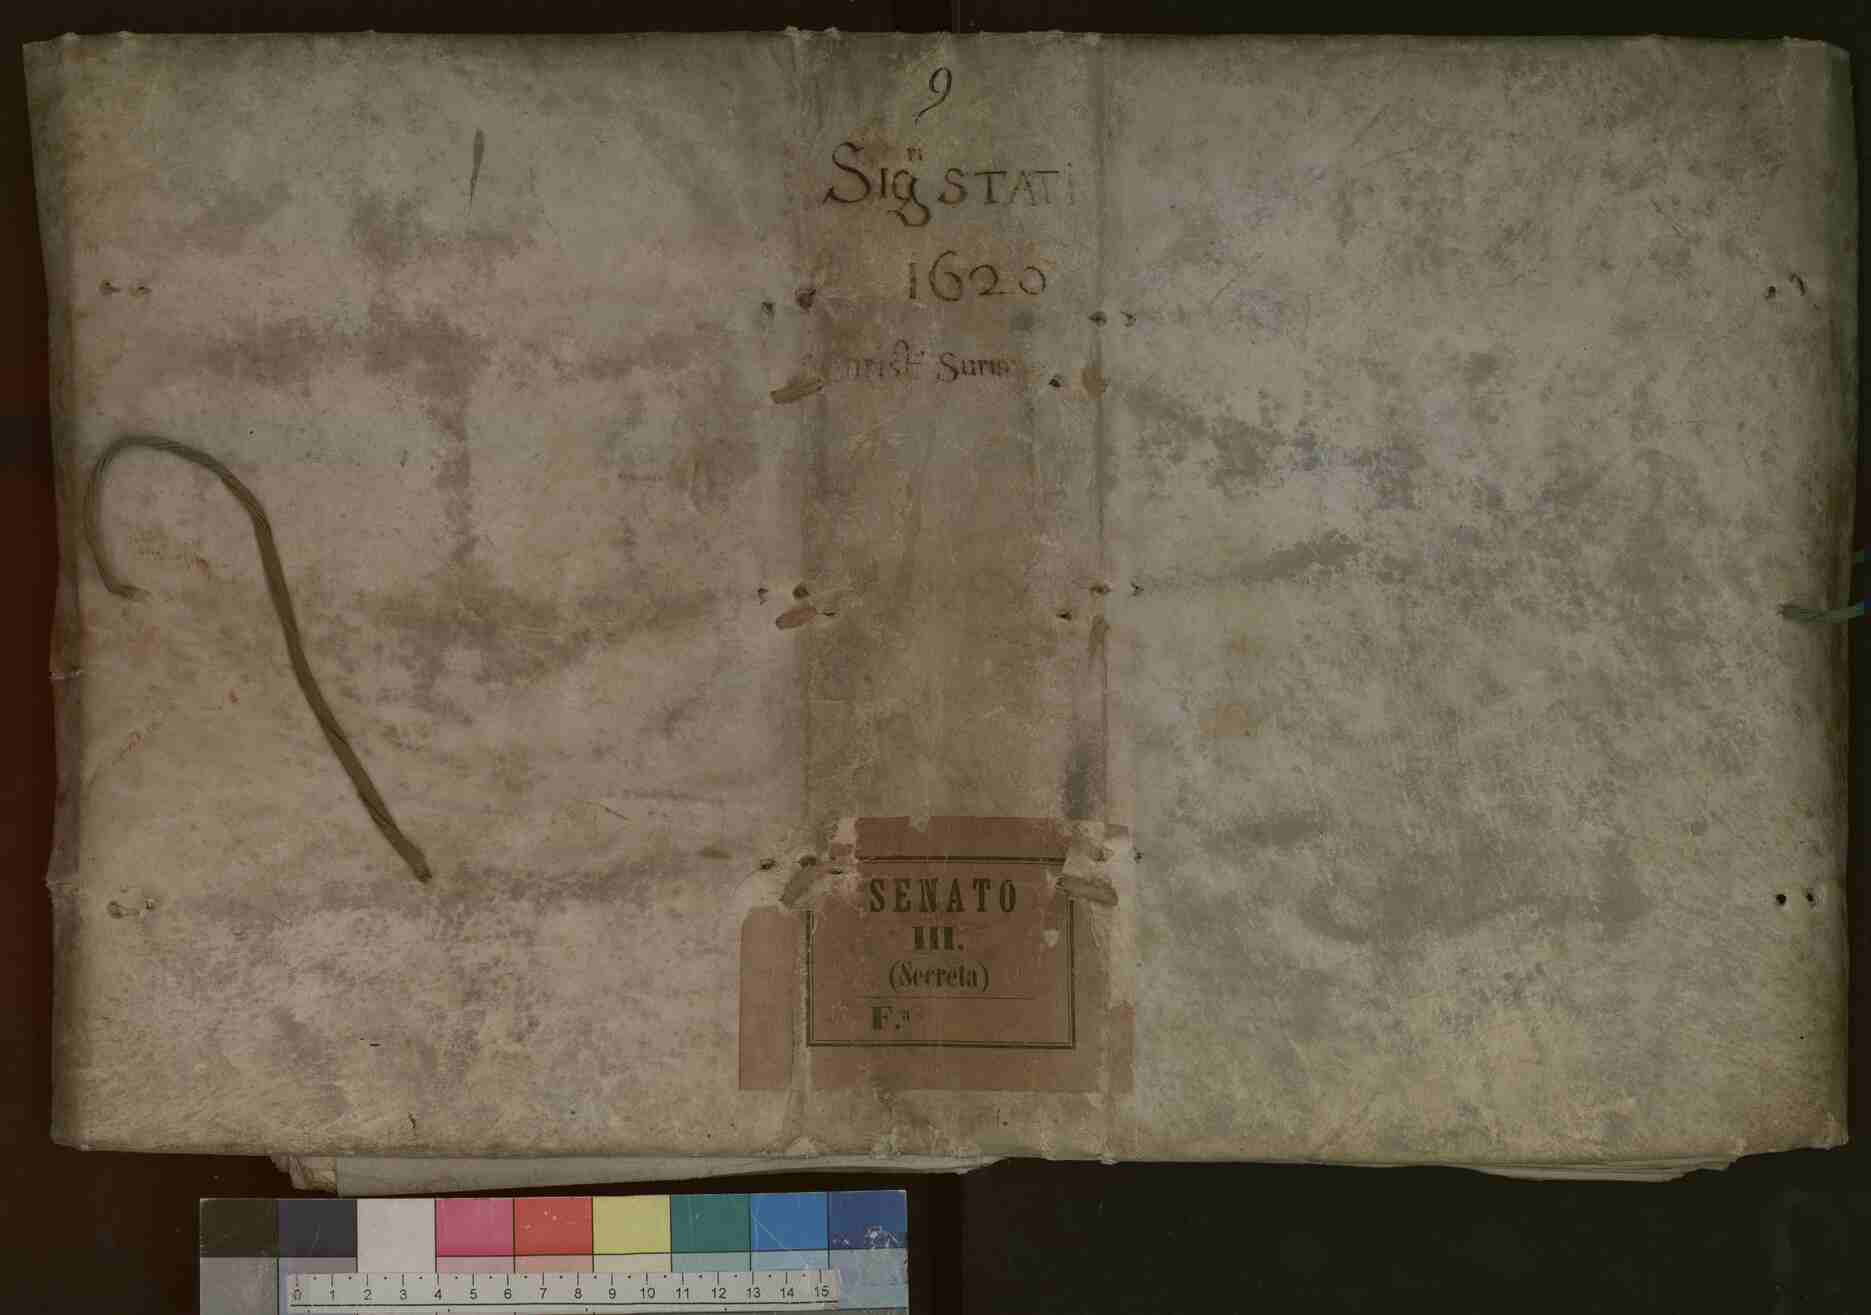 9
Sig.ri STATI
1620
Christ. Surian
SENATO
III.
(Secreta)
F.a
0 1 2 3 4 5 6 7 8 9 10 11 12 13 14 15